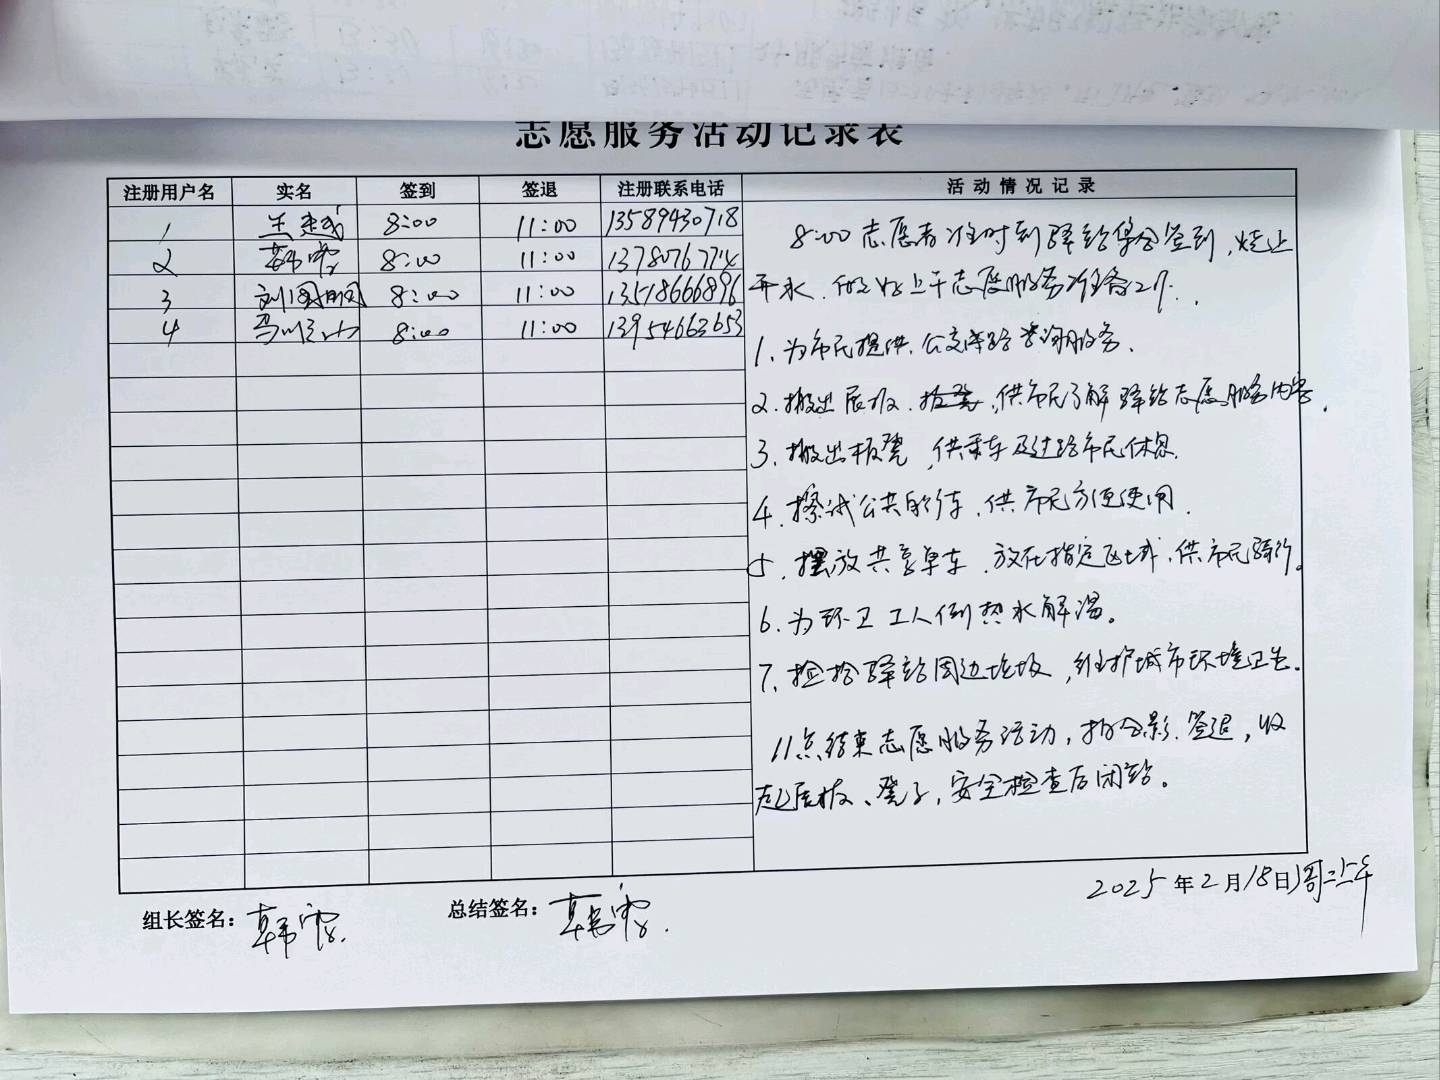 志愿服务活动记录表
注册用户名 实名 签到 签退 注册联系电话 活动情况记录
1 王建成 8:00 11:00 13589430718
2 韩霞 8:00 11:00 13780767714
3 刘国明 8:00 11:00 13518666896
4 8:00 11:00 13954663653
8:00志愿者准时到驿站集合签到,烧上
开水、做好上午志愿服务准备工作.
1、为市民提供、公交线路咨询服务、
2、搬出展板、供市民了解驿站志愿服务内容、
3、搬出板凳,供乘车及过路市民休息
4、擦试公共自行车、供市民方便使用.
5、摆放共享单车、放在指定区域、供市民骑行。
6、为环卫工人倒热水解渴。
7、捡拾驿站周边垃圾,维护城市环境卫生.
11点结束志愿服务活动,拍合影、签退,收
起展板、凳子,安全检查后闭站。
2025年2月18日周二上午
组长签名:韩霞. 总结签名:韩霞.